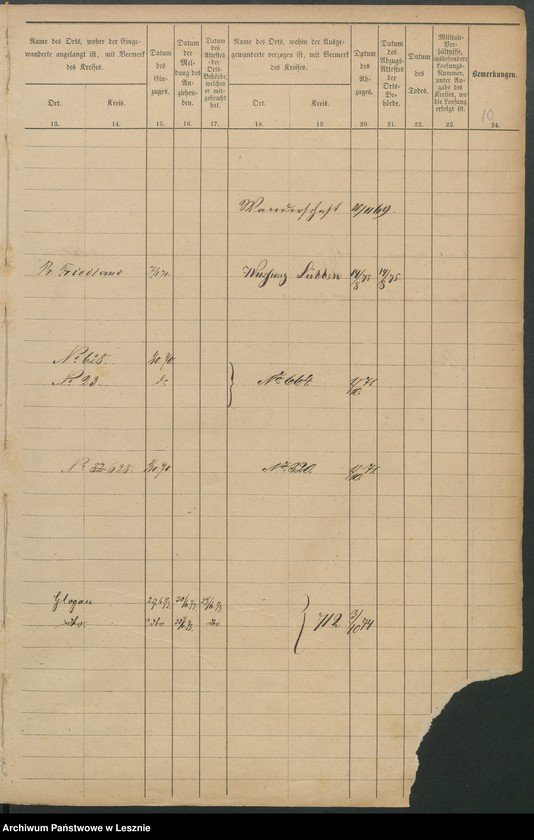 Name des Orts, woher der Einge-
wanderte angelangt ist, mit Vermerk
des Kreises.
Ort.
Kreis.
13.
14.
Datum
des
Ein-
zuges.
15.
Datum
der
Mel-
dung des
An-
ziehen-
den.
16.
Datum
des
Attestes
der
Orts-
Behörde,
welches
er mit-
gebracht
hat.
17.
Name des Orts, wohin der Ausge-
gewanderte verzogen ist, mit Vermerk
des Kreises.
Ort.
Kreis.
18.
19.
Datum
des
Ab-
zuges.
20.
Datum
des
Abzugs-
Attestes
der
Orts-
Be-
hörde.
21.
Datum
des
Todes.
22.
Militair-
Ver-
hältnisse,
insbesondere
Loosungs-
Nummer,
unter An-
gabe des
Kreises, wo
die Loosung
erfolgt ist.
23.
Bemerkungen.
10
24.
Wanderschaft 69.
Pr. Friedland
Lübben 14/5 75 14/5 75
No 628.
No 23. No 664.
628. No 320.
Glogau
dto. dto dto
712 3/10 74
Archiwum Państwowe w Lesznie